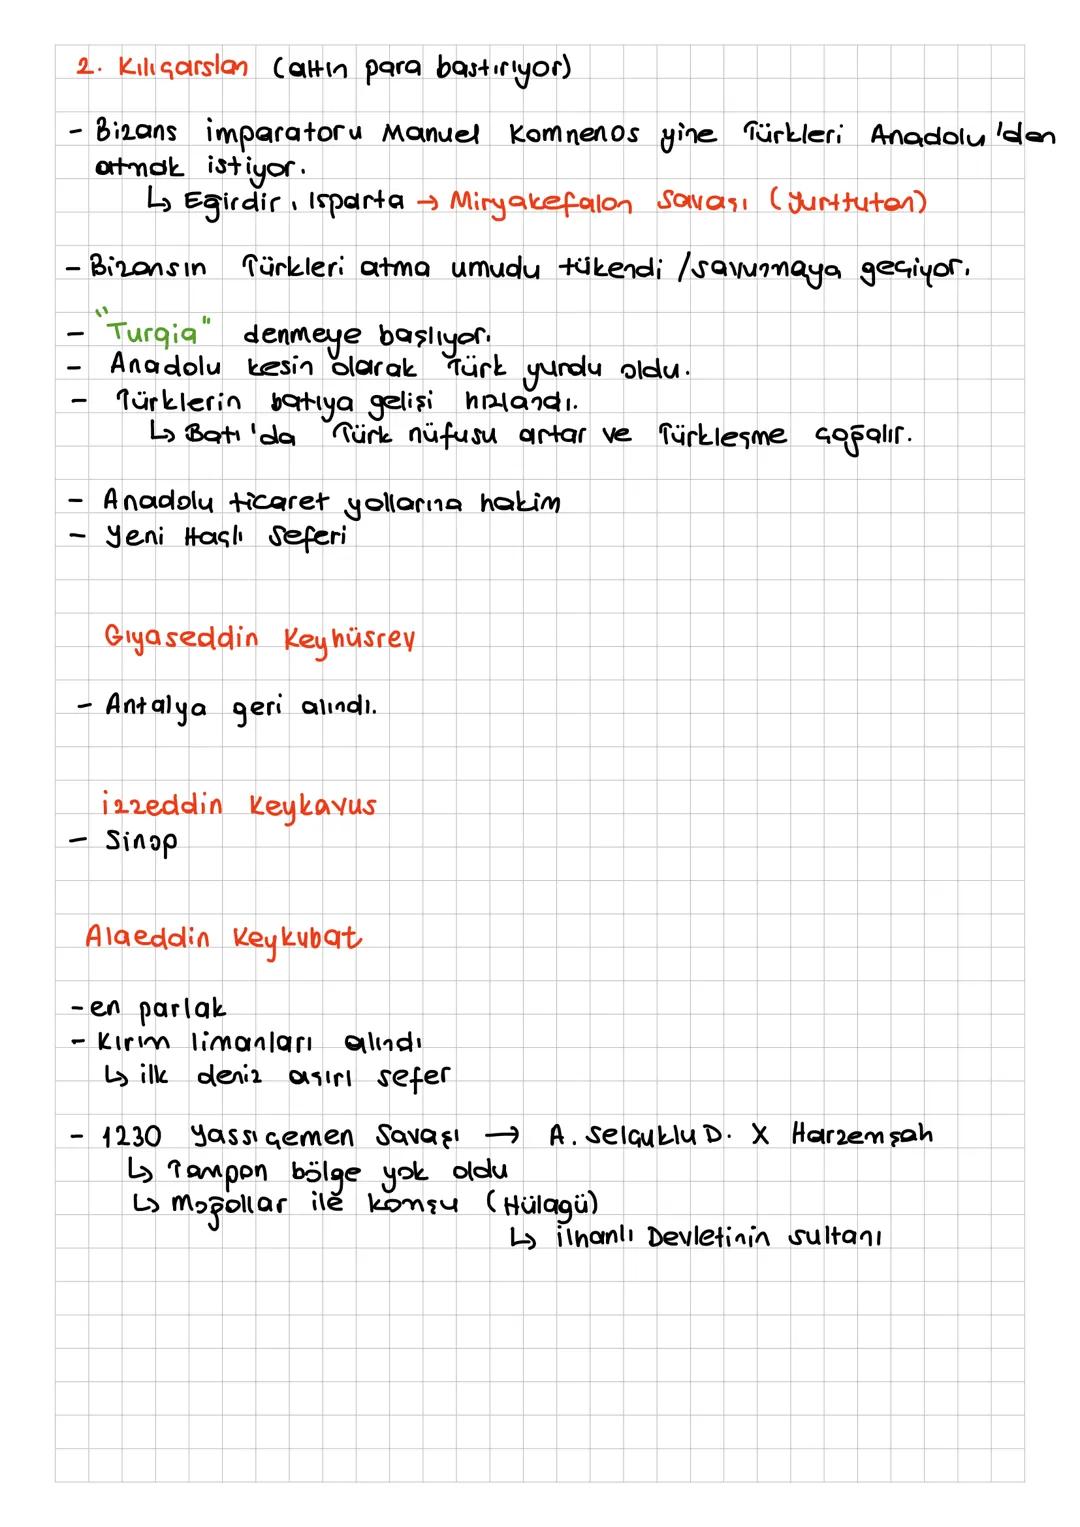 2. Kılıçarslan (altın para bastırıyor)
- Bizans imparatoru Manuel Komnenos yine Türkleri Anadolu'dan
atmak istiyor.
↳ Eğirdir, Isparta → Miryakefalon Savaşı (Yurttutan)
- Bizansın Türkleri atma umudu tükendi / savunmaya geçiyor.
- "Turqia" denmeye başlıyor.
- Anadolu kesin olarak Türk yurdu oldu.
- Türklerin batıya gelişi hızlandı.
↳ Batı'da Türk nüfusu artar ve Türkleşme çoğalır.
- Anadolu ticaret yollarına hakim
- Yeni Haçlı Seferi
Gıyaseddin Keyhüsrev
- Antalya geri alındı.
İzzeddin Keykavus
- Sinop
Alaeddin Keykubat
- en parlak
- Kırım limanları alındı
↳ ilk deniz aşırı sefer
- 1230 Yassıçemen Savaşı → A. Selçuklu D. X Harzemşah
↳ Tampon bölge yok oldu
↳ Moğollar ile komşu (Hülagü)
↳ ilhanlı Devletinin sultanı